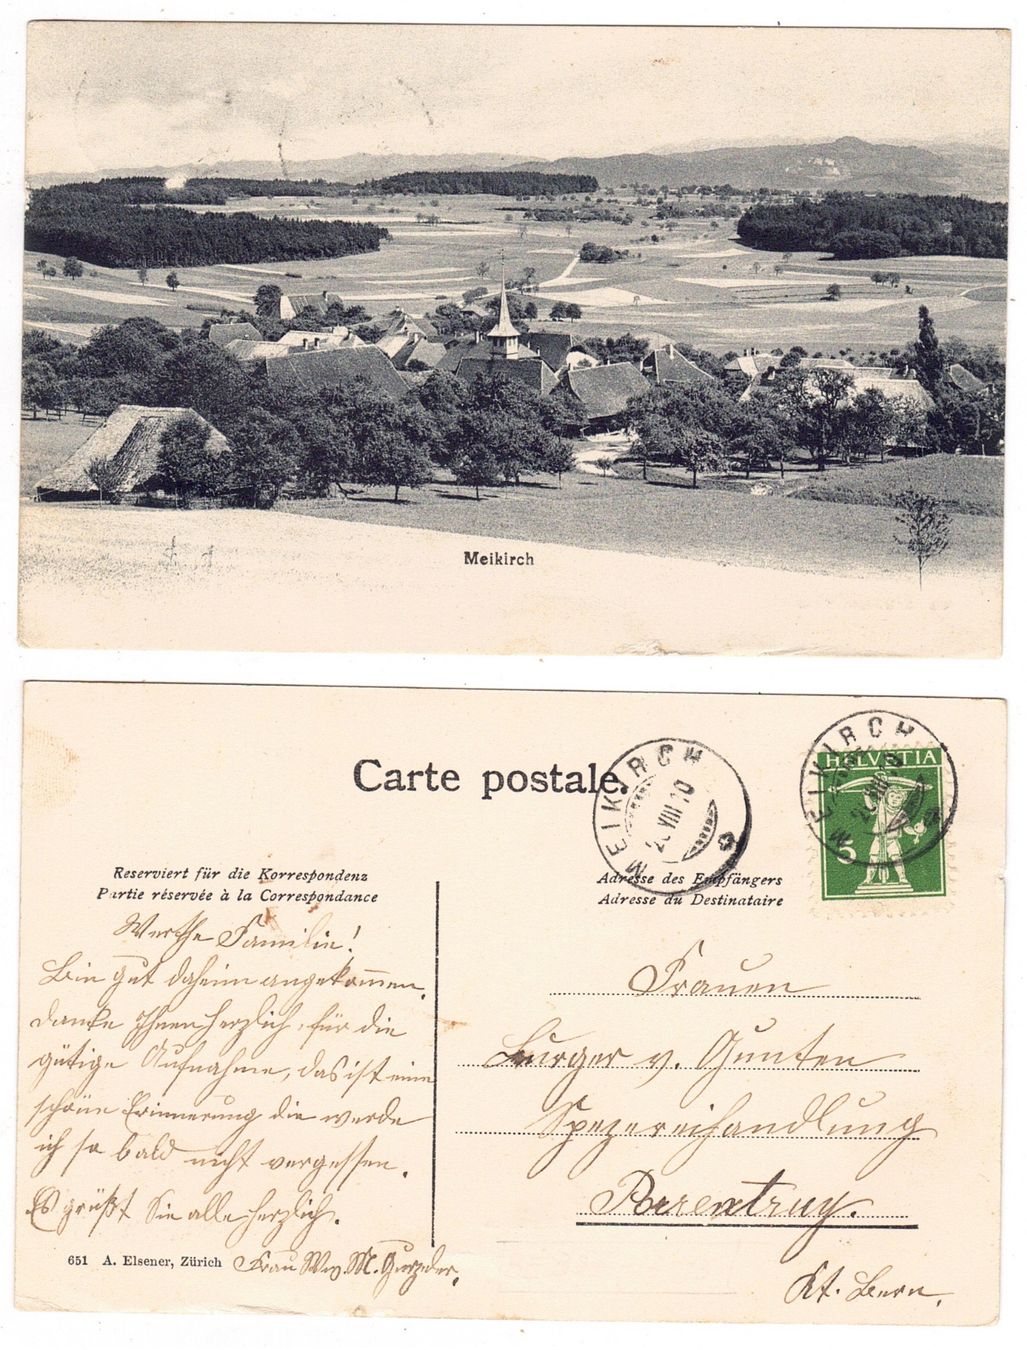 Meikirch
Carte postale.
MEIKIRCH
VIII 10
MEIKIRCH
VIII 10
HELVETIA
5
Reserviert für die Korrespondenz
Partie réservée à la Correspondance
Adresse des Empfängers
Adresse du Destinataire
Werthe Familie!
Bin gut daheim angekommen.
danke Ihnen herzlich, für die
gütige Aufnahme, das ist eine
schöne Erinnerung die werde
ich so bald nicht vergessen.
Es grüßt Sie alle herzlich.
Frau Ww. M.
651 A. Elsener, Zürich
Frauen
Burger v. Gunten
Spezereihandlung
Porrentruy.
Kt. Bern.